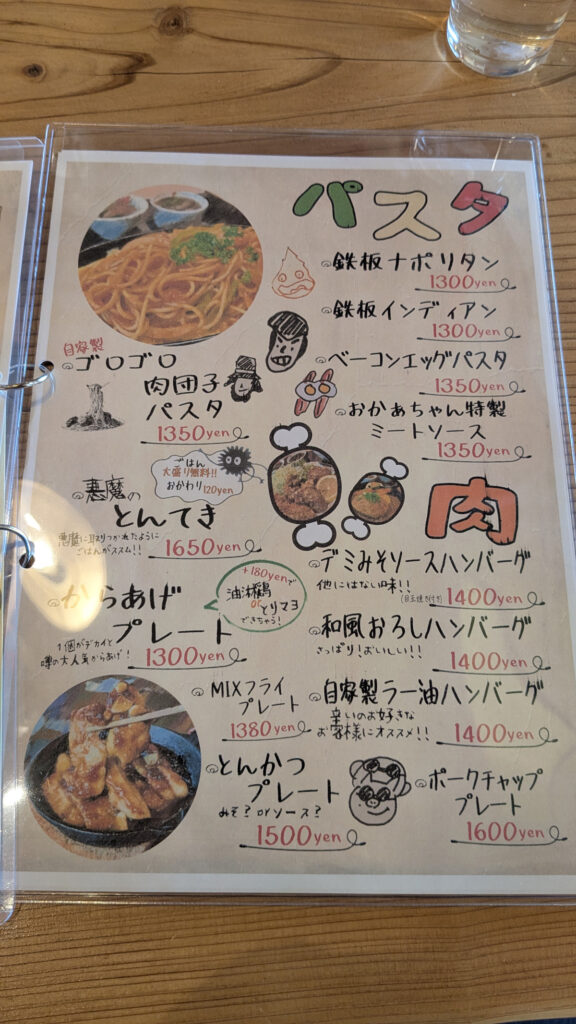 パスタ
鉄板ナポリタン
1300yen
鉄板インディアン
1300yen
自家製
ゴロゴロ
肉団子
パスタ
1350yen
ベーコンエッグパスタ
1350yen
おかあちゃん特製
ミートソース
1350yen
肉
ごはん
大盛り無料!!
おかわり120yen
悪魔の
とんてき
悪魔に取りつかれたように
ごはんがススム!!
1650yen
デミみそソースハンバーグ
他にはない味!!
(目玉焼き付き)
1400yen
からあげ
プレート
1個がデカイと
噂の大人気からあげ!
1300yen
+180yenで
油淋鶏
or
とりマヨ
できちゃう!
和風おろしハンバーグ
さっぱり!おいしい!!
1400yen
MIXフライ
プレート
1380yen
自家製ラー油ハンバーグ
辛いのお好きな
お客様にオススメ!!
1400yen
とんかつ
プレート
みそ?orソース?
1500yen
ポークチャップ
プレート
1600yen